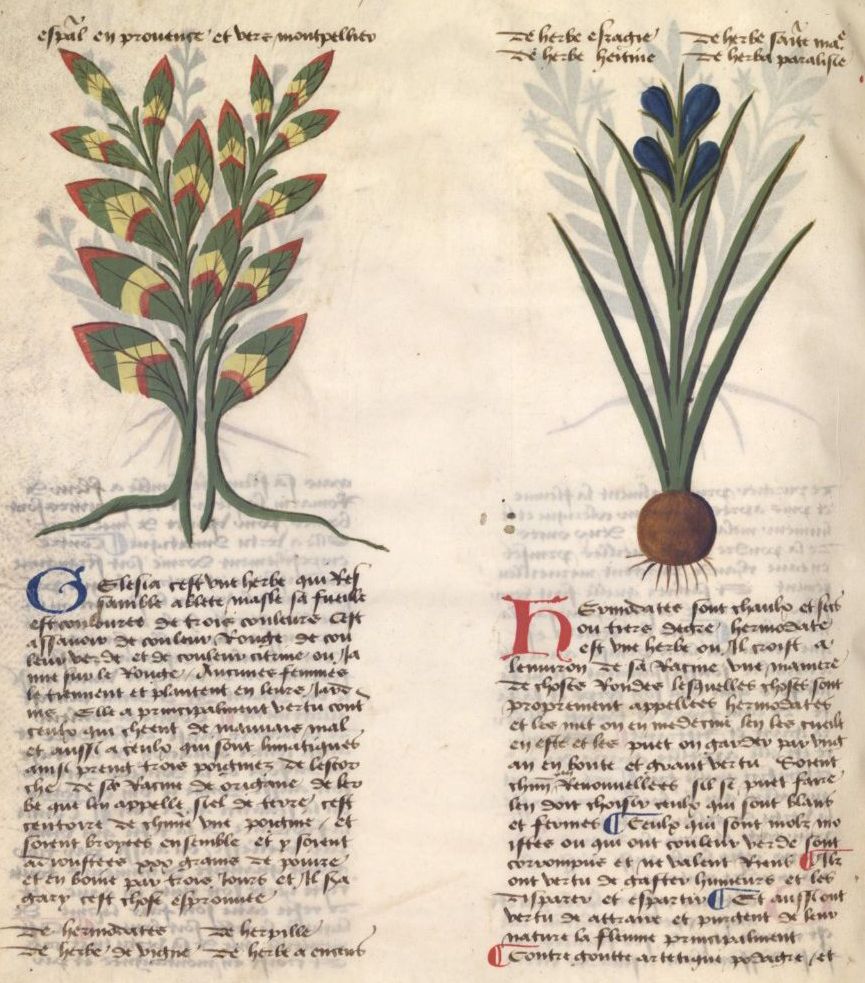 espāl en prouence et vers montpellier
Glesia cest vne herbe qui res
samble a blete masle sa fueille
est couluree de trois couleurs Cest
assauoir de couleur Rouge de cou
leur verde et de couleur citrine ou Ja
une sur le Rouge Aucunes femmes
le tiennent et plantent en leurs Jardi
ns Elle a principalment vertu contre
ceulx qui cheent de mauuais mal
et aussi a ceulx qui sont lunatiques
ainsi preng trois poignies de lescor
che de sa Racine de origane de ler
be que len appelle fiel de terre cest
centoire de chūne vne poignie et
soient broyees ensemble et y soient
adioustees xxx grains de poiure
et en boiue par trois Jours et Jl sera
gary cest chose esprouuee
De hermodates De herpille
De herbe de vigne De herbe a encens
De herbe esragie De herbe saīte maē
De herbe heritine De herba paralisie
Hermodates sont chaulx et secs
ou tiers degre hermodate
est vne herbe ou Jl croist a
lenuiron de sa Racine vne maniere
de choses Rondes lesquelles choses sont
proprement appellees hermodates
et les met on en medecine len les cueilt
en este et les puet on garder par vng
an en bonte et grant vertu Soient
chūn an Renouuellees sil se puet faire
len doit choisir ceulx qui sont blans
et fermes Ceulx qui sont molz mo
istes ou qui ont couleur verde sont
corrompus et ne valent Riens Jlz
ont vertu de gaster humeurs et les
disparer et espartir Et aussi ont
vertu de attraire et purgent de leur
nature la fleume principalment
Contre goutte artetique podagre et